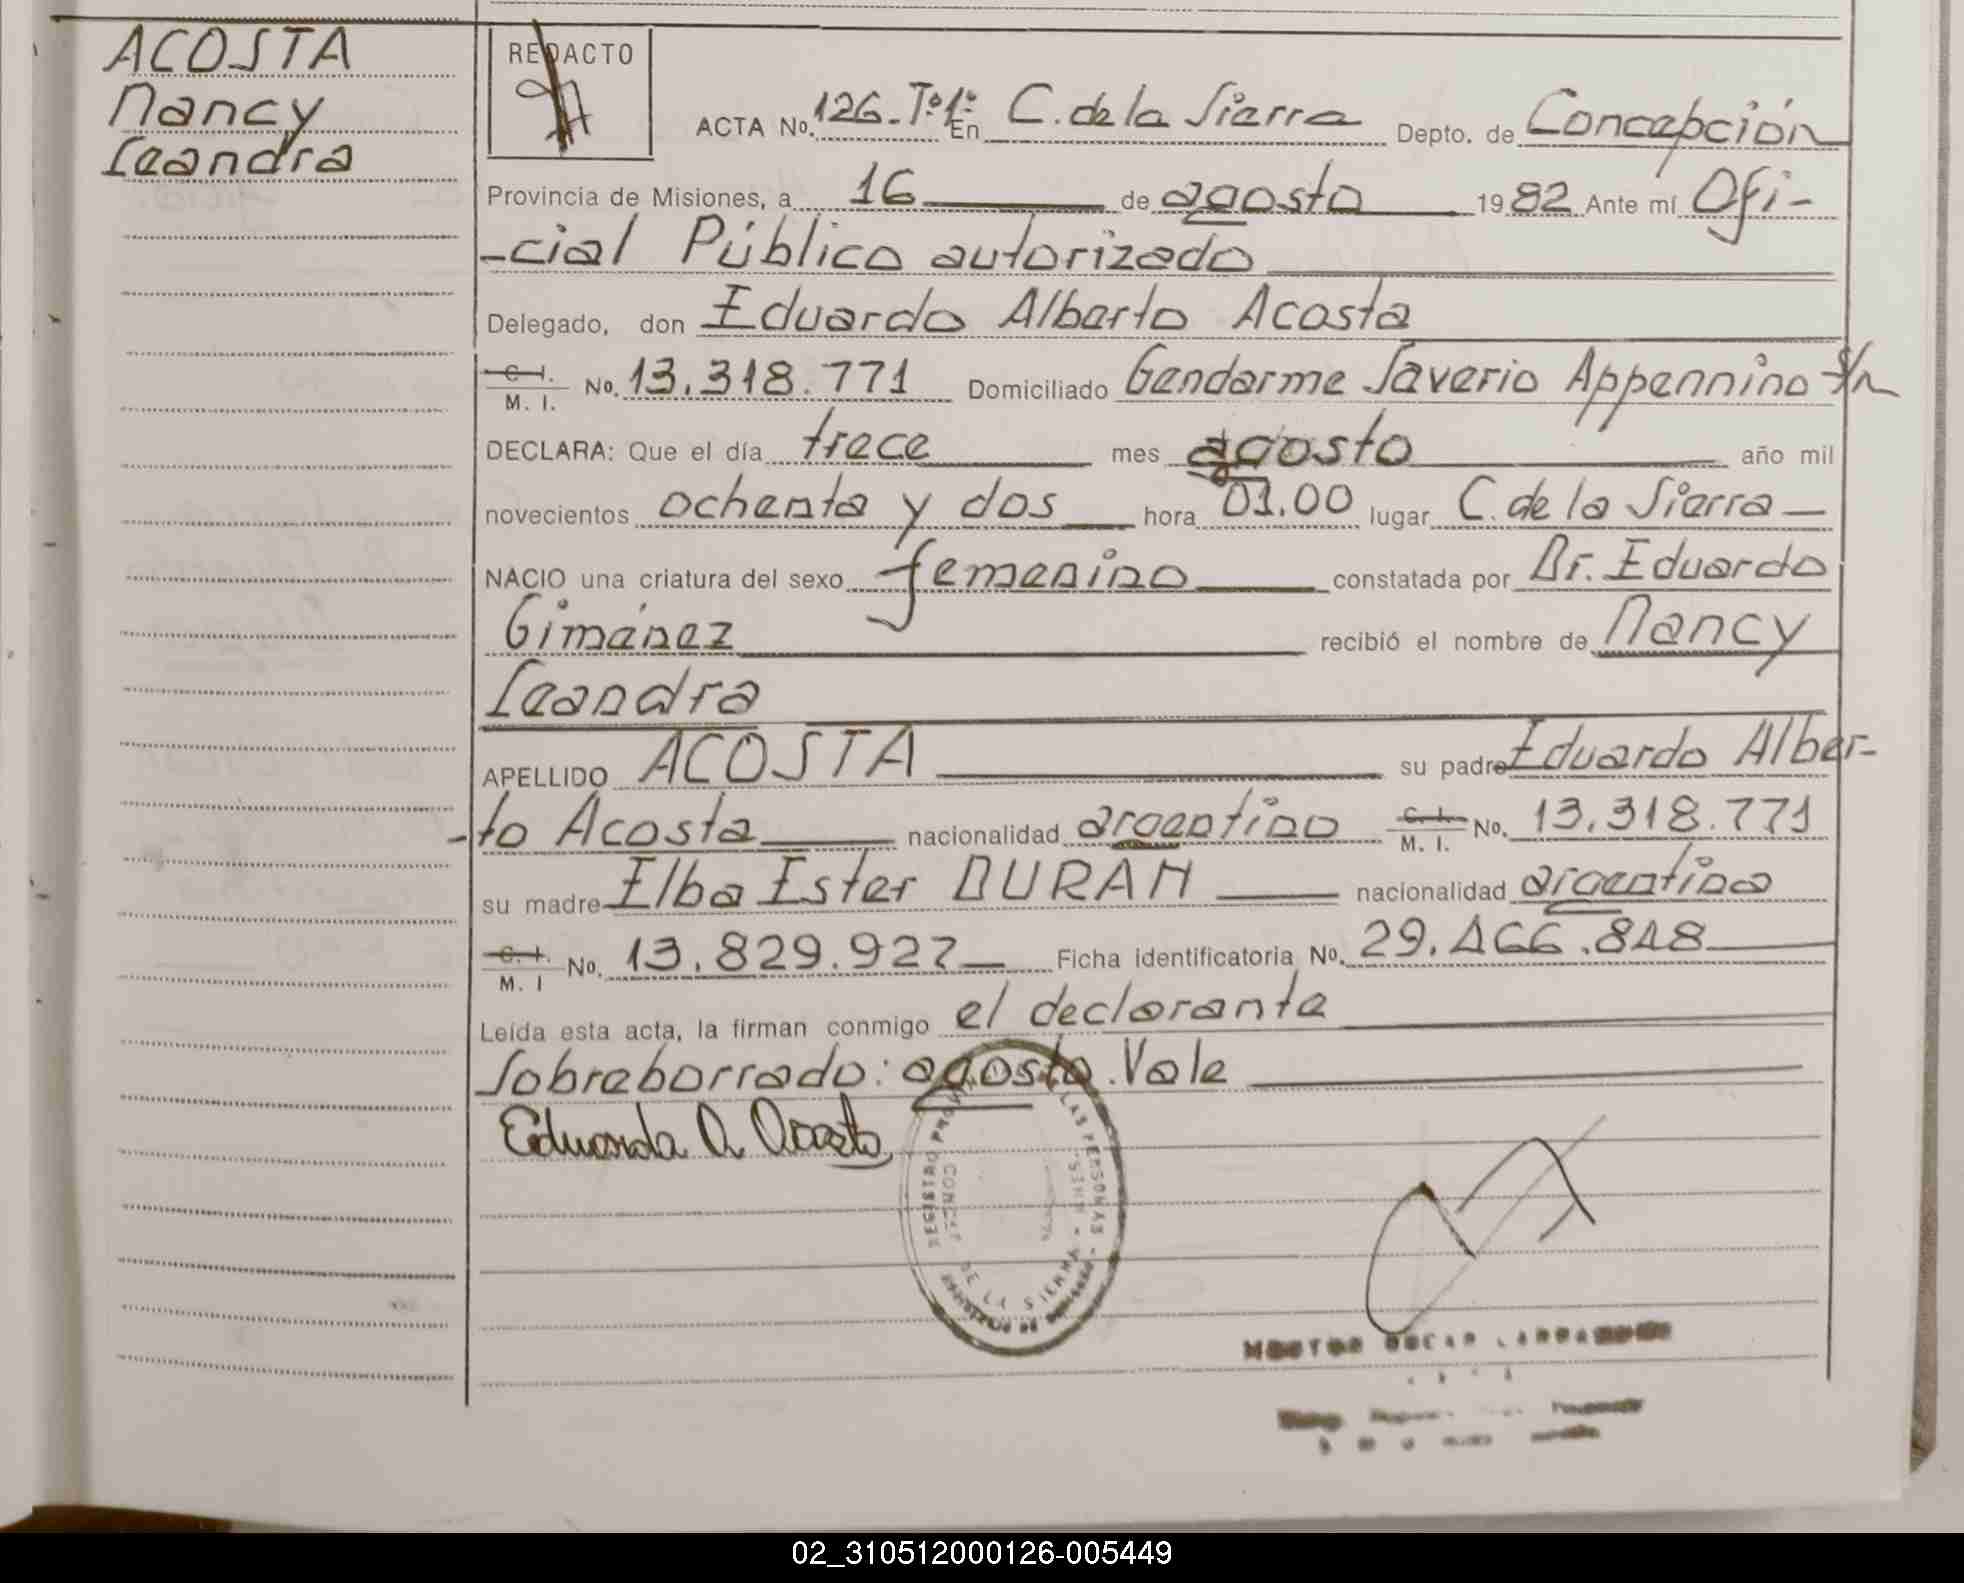 ACOSTA
Nancy
Leandra
REDACTO
ACTA No. 126. Tº. 1º. En C. de la Sierra Depto. de Concepción
Provincia de Misiones, a 16 de agosto 1982 Ante mí Ofi-
-cial Público autorizado
Delegado, don Eduardo Alberto Acosta
C. I. M. I. No. 13.318.771 Domiciliado Gendarme Saverio Appennino s/n
DECLARA: Que el día trece mes agosto año mil
novecientos ochenta y dos hora 01.00 lugar C. de la Sierra
NACIO una criatura del sexo femenino constatada por Dr. Eduardo
Giménez recibió el nombre de Nancy
Leandra
APELLIDO ACOSTA su padre Eduardo Alber-
-to Acosta nacionalidad argentino C. I. M. I. No. 13.318.771
su madre Elba Ester DURAN nacionalidad argentina
C. I. M. I No. 13.829.927 Ficha identificatoria No. 29.466.848
Leída esta acta, la firman conmigo el declarante
Sobreborrado: agosto. Vale
Eduardo A. Acosta
REGISTRO LAS PERSONAS
DE LA SIERRA
02_310512000126-005449